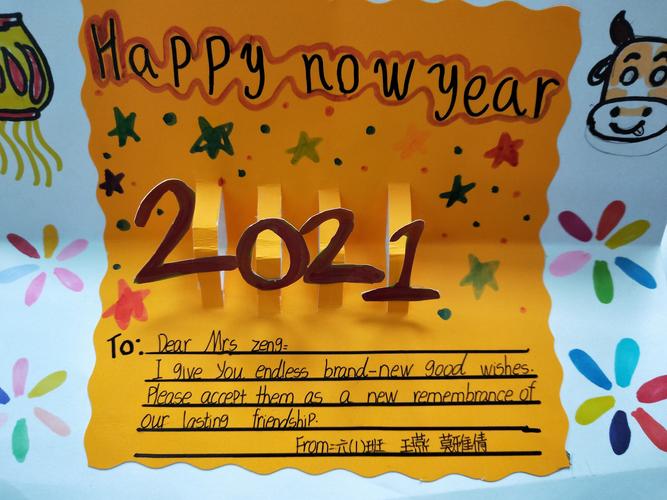 Happy now year
2021
To: Dear Mrs zeng:
I give you endless brand-new good wishes.
Please accept them as a new remembrance of
our lasting friendship.
From:六(1)班 王燕 莫雅倩